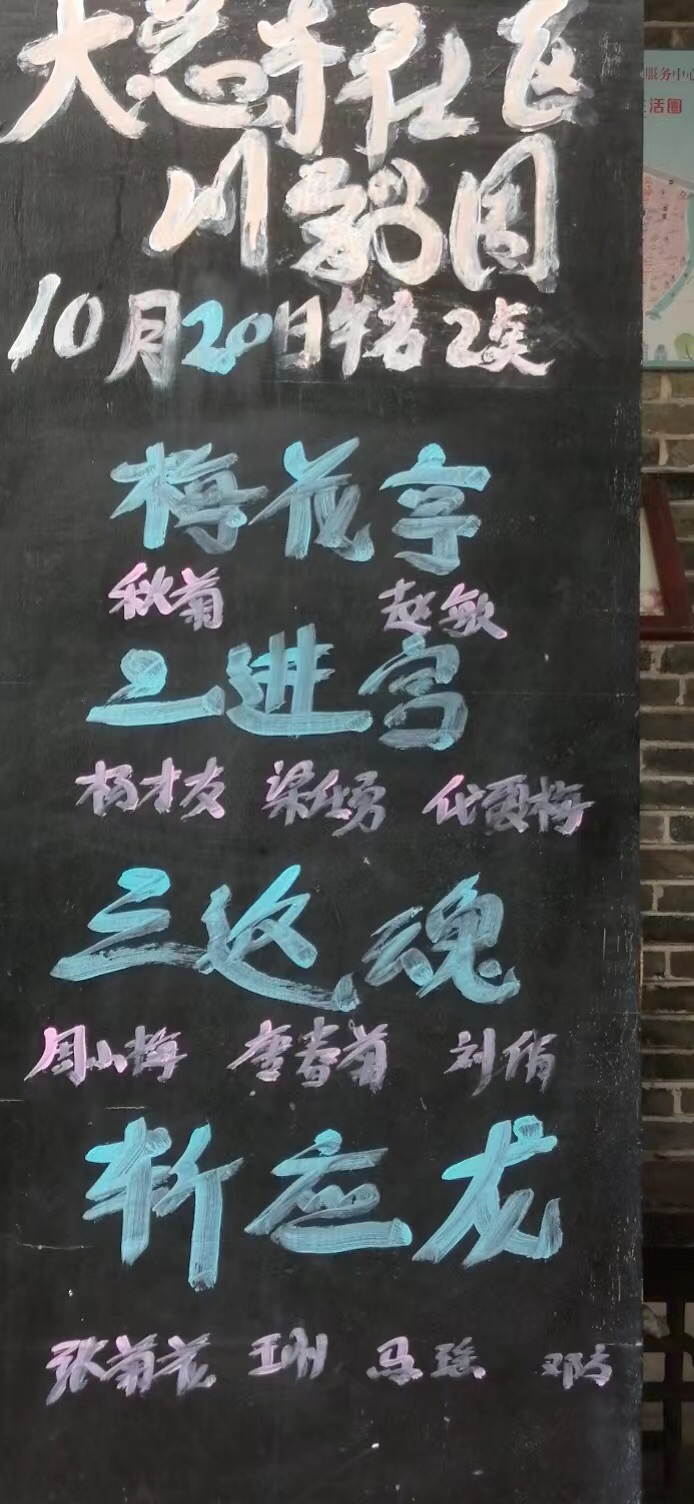 大慈寺社区
川剧团
10月20日午后2点
梅花亭
秋菊 赵敏
二进宫
杨才友 梁代勇 代夏梅
三返魂
周小梅 唐春菊 刘俏
斩应龙
张菊花 王琳 马瑶
服务中心
生活圈